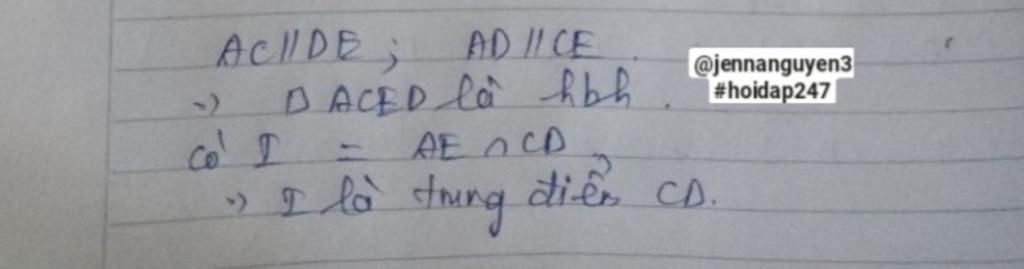 AC//DE ; AD//CE.
=> □ ACED là hbh.
có I = AE ∩ CD
=> I là trung điểm CD.
@jennanguyen3
#hoidap247